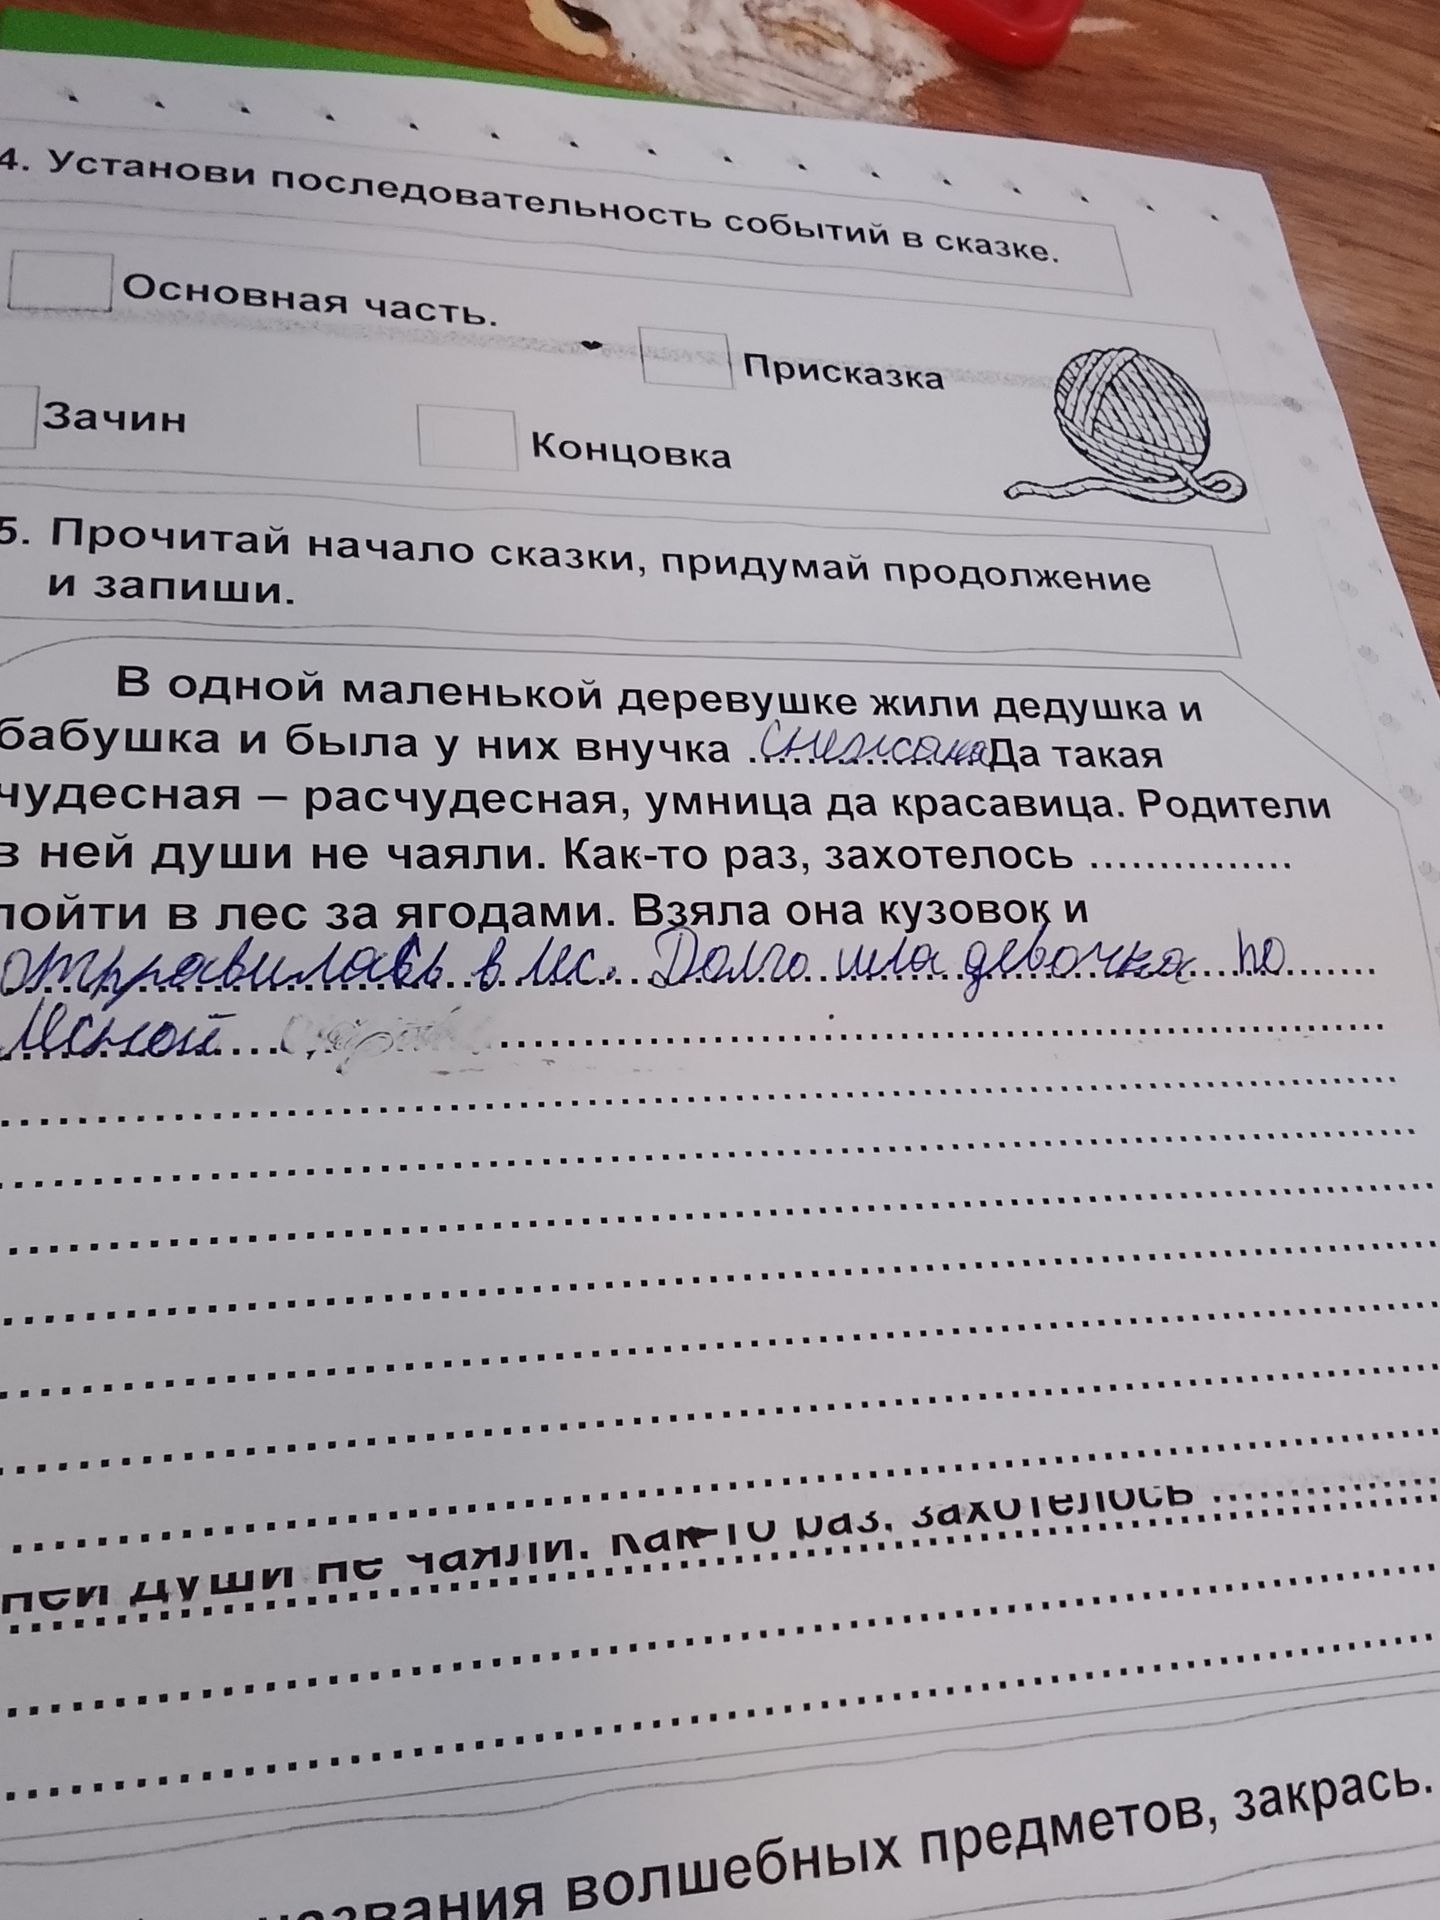 4. Установи последовательность событий в сказке.
Основная часть.
Присказка
Зачин
Концовка
5. Прочитай начало сказки, придумай продолжение
и запиши.
В одной маленькой деревушке жили дедушка и
бабушка и была у них внучка Снежана Да такая
чудесная – расчудесная, умница да красавица. Родители
в ней души не чаяли. Как-то раз, захотелось ...............
пойти в лес за ягодами. Взяла она кузовок и
отправилась в лес. Долго шла девочка по
лесной
ней души не чаяли. Как-то раз, захотелось
названия волшебных предметов, закрась.